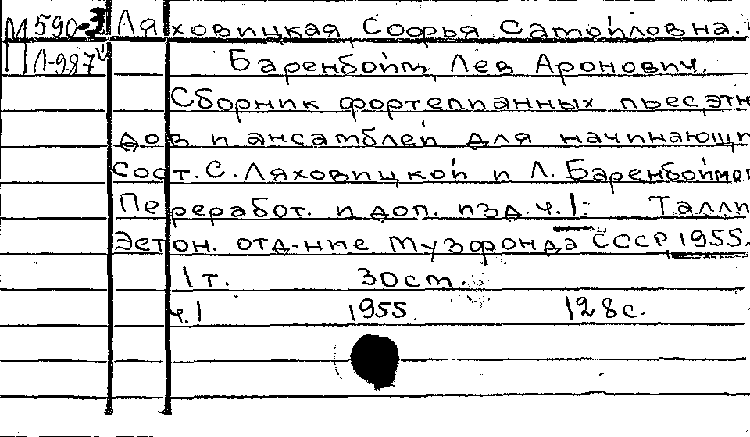 М590-2 Ляховицкая Софья Самойловна.
П Л-987 Баренбойм, Лев Аронович.
Сборник фортепианных пьес, этю
дов и ансамблей для начинающи
Сост. С. Ляховицкой и Л. Баренбоймом
Переработ. и доп. изд. ч. 1: Талли
Эстон. отд-ние Музфонда СССР 1955.
1 т. 30 см.
ч. 1 1955 128 с.